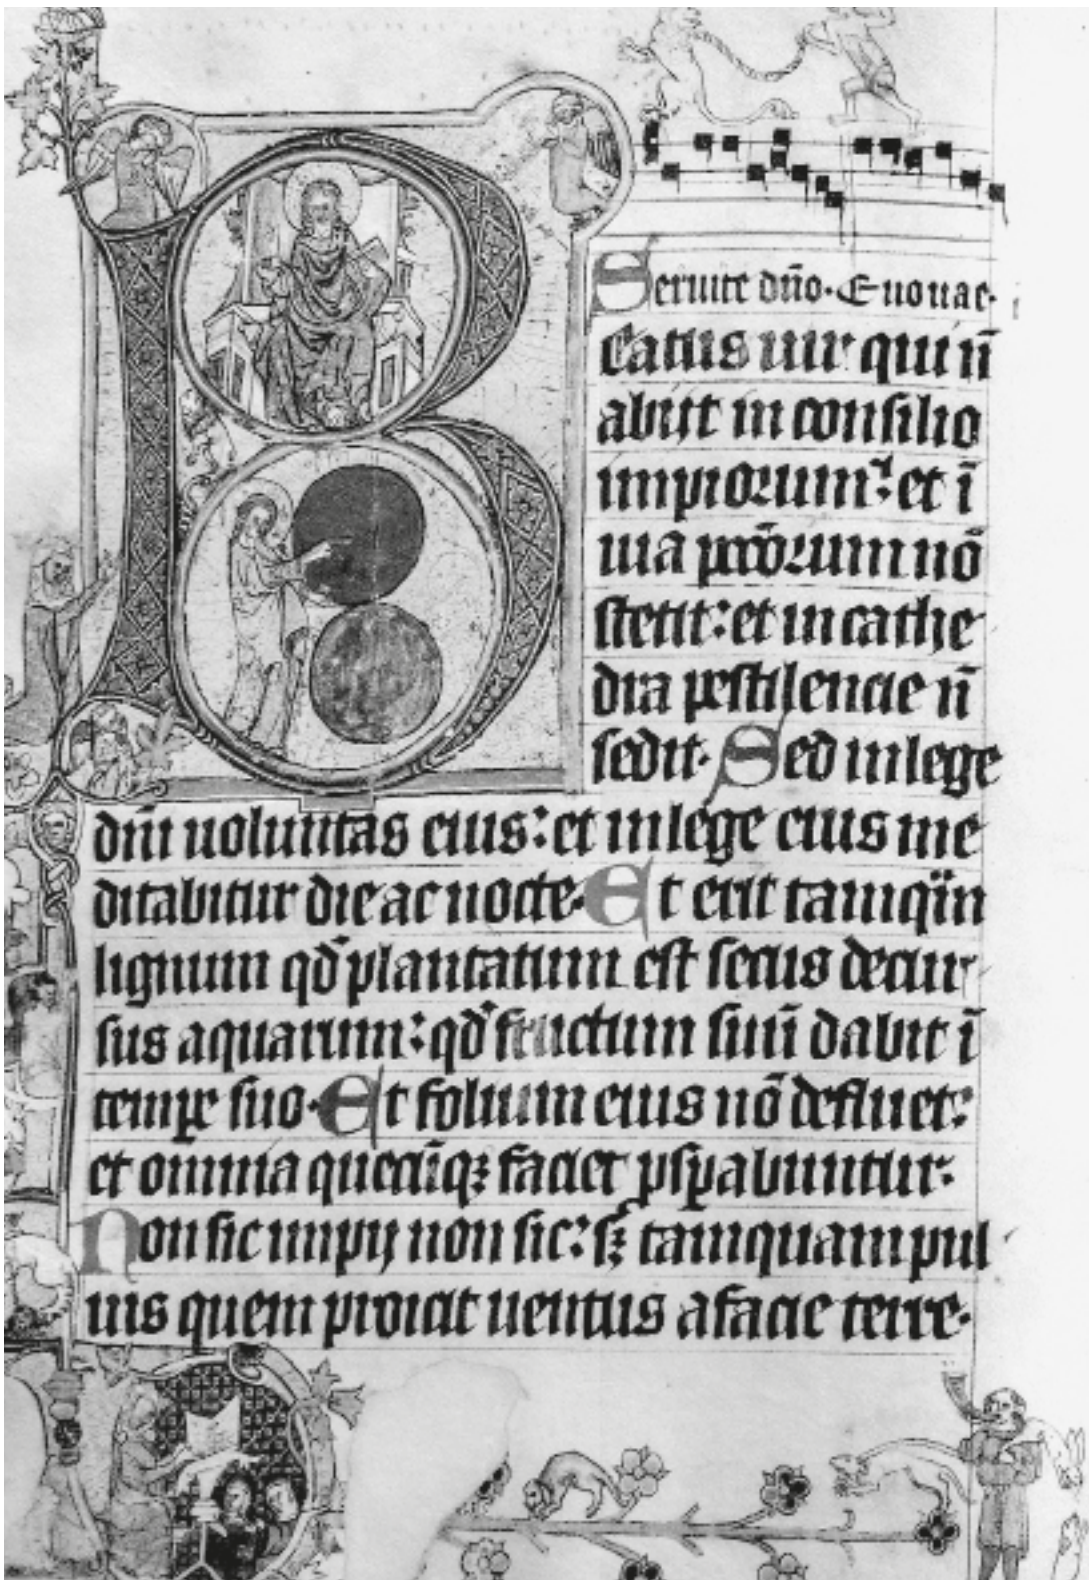 Seruite dño. Euouae.
Eatus uir qui ñ
abijt in consilio
impiorum: et ī
uia pccōrum nō
stetit: et in cathe
dra pestilencie ñ
sedit. Sed in lege
dñi uoluntas eius: et in lege eius me
ditabitur die ac nocte. Et erit tamq̈m
lignum qd̓ plantatum est secus decur
sus aquarum: qd̓ fructum suū dabit ī
temꝑe suo. Et folium eius nō defluet:
et omnia quecūqꝫ faciet ꝓsꝑabuntur.
Non sic impij non sic: sꝫ tamquam pul
uis quem proicit uentus a facie terre.